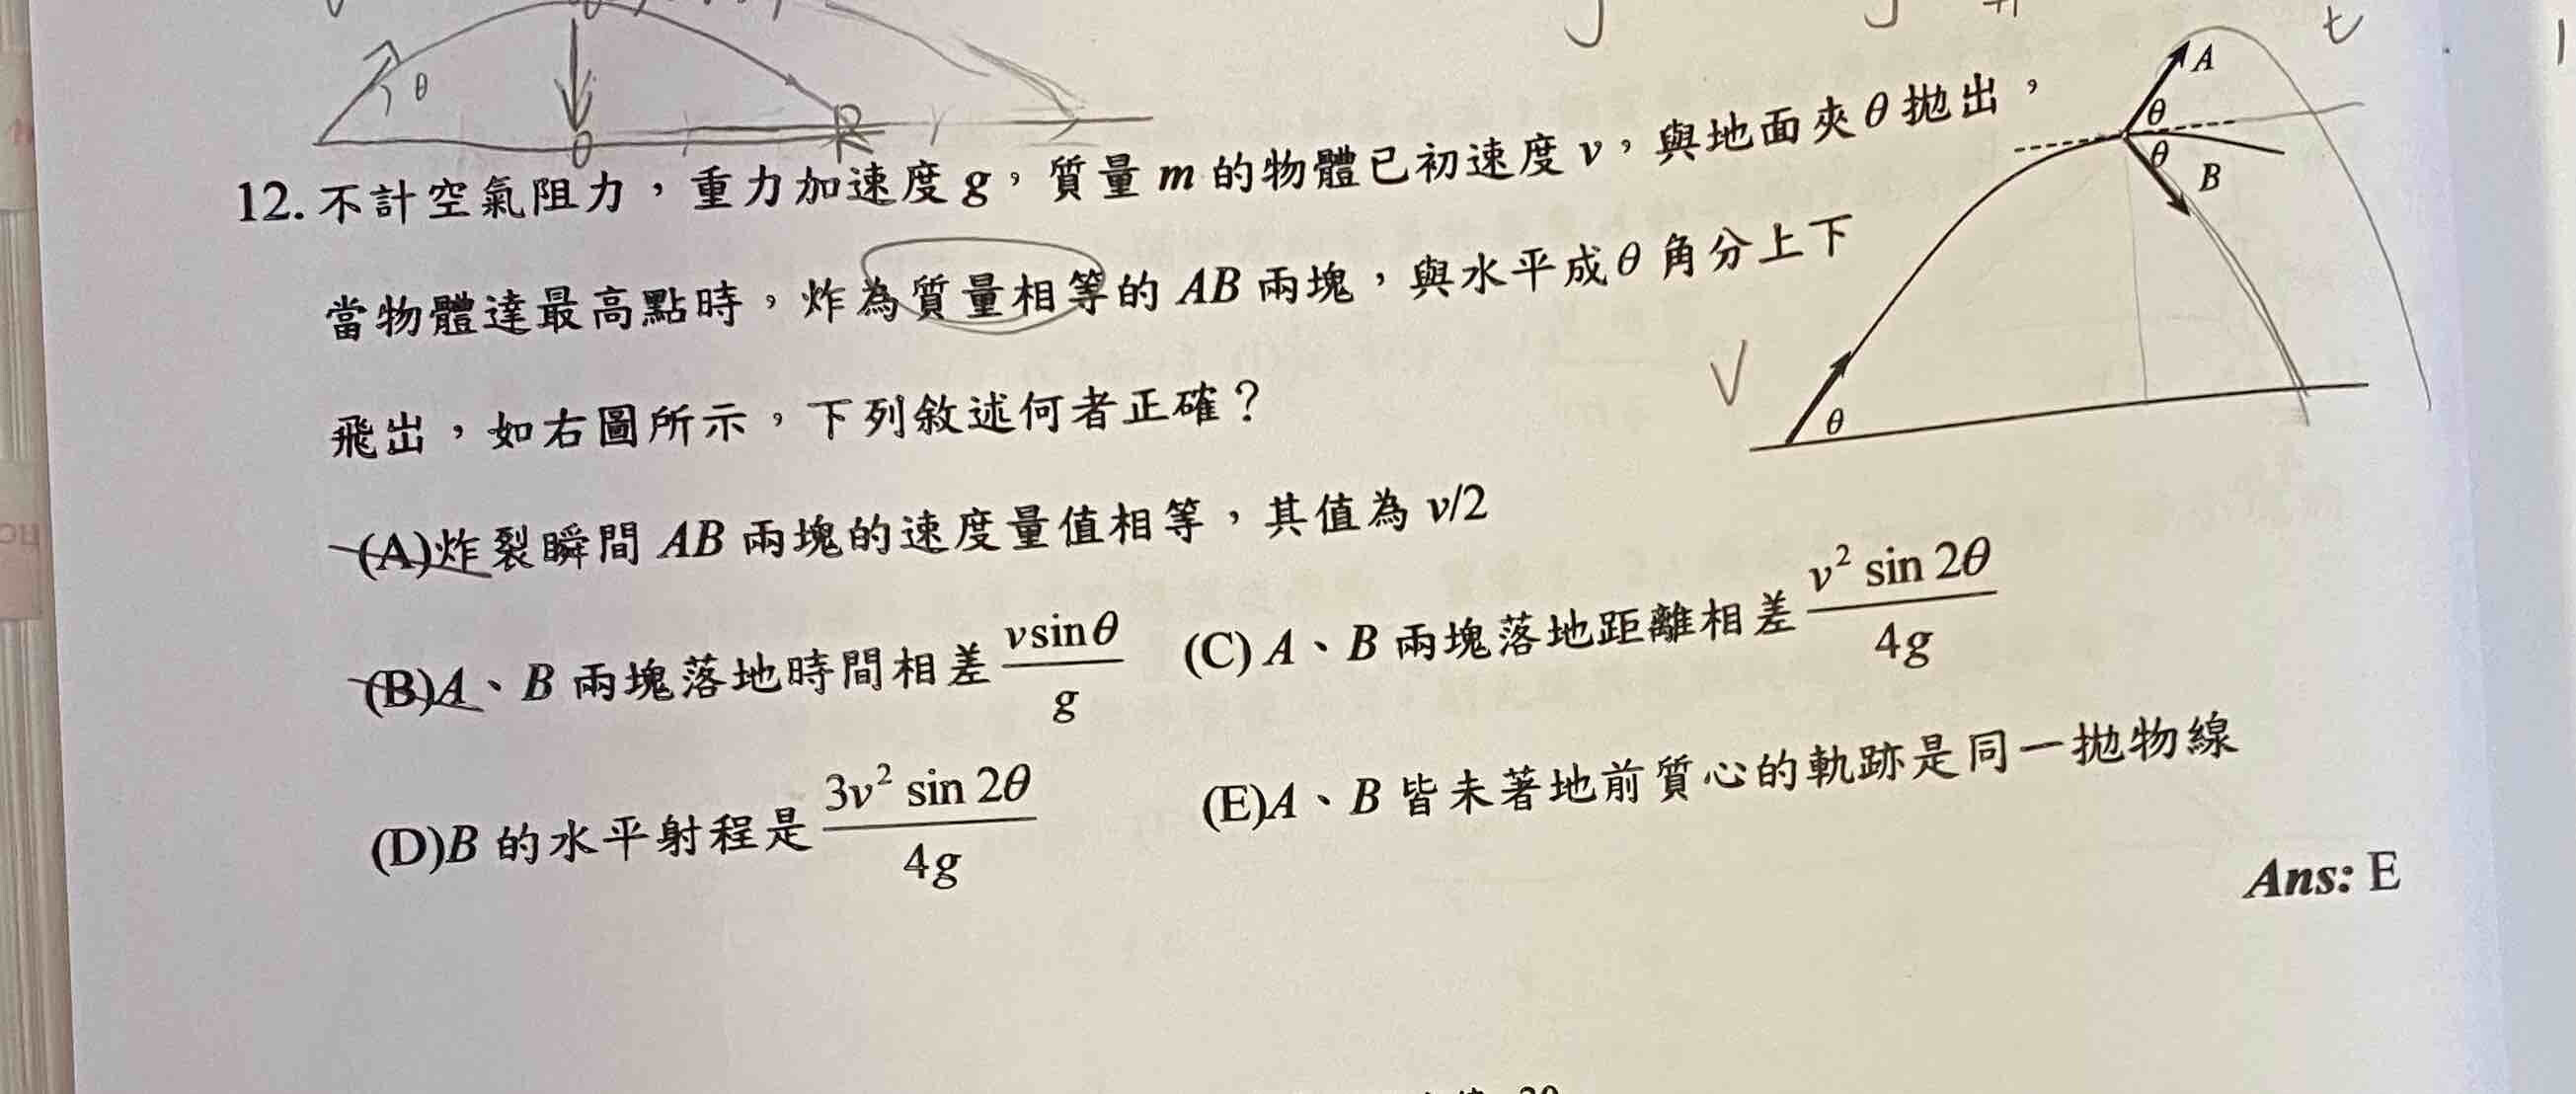 θ
R
t
A
θ
θ
B
12. 不計空氣阻力，重力加速度 g，質量 m 的物體已初速度 v，與地面夾 θ 拋出，
當物體達最高點時，炸為質量相等的 AB 兩塊，與水平成 θ 角分上下
飛出，如右圖所示，下列敘述何者正確？
V
θ
(A)炸裂瞬間 AB 兩塊的速度量值相等，其值為 v/2
(B)A、B 兩塊落地時間相差 \frac{v\sin\theta}{g} (C) A、B 兩塊落地距離相差 \frac{v^2 \sin 2\theta}{4g}
(D)B 的水平射程是 \frac{3v^2 \sin 2\theta}{4g} (E)A、B 皆未著地前質心的軌跡是同一拋物線
Ans: E